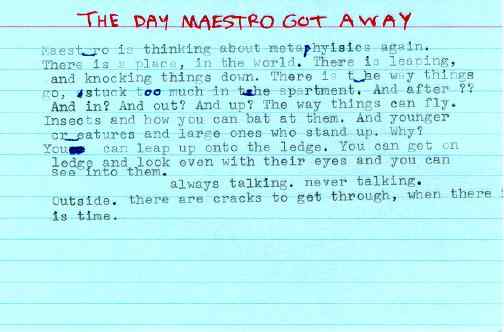 THE DAY MAESTRO GOT AWAY
Maestro is thinking about metaphyisics again.
There is a place, in the world. There is leaping,
and knocking things down. There is the way things
go, stuck too much in the apartment. And after ??
And in? And out? And up? The way things can fly.
Insects and how you can bat at them. And younger
creatures and large ones who stand up. Why?
You can leap up onto the ledge. You can get on
ledge and look even with their eyes and you can
see into them.
always talking. never talking.
Outside. there are cracks to get through, when there
is time.